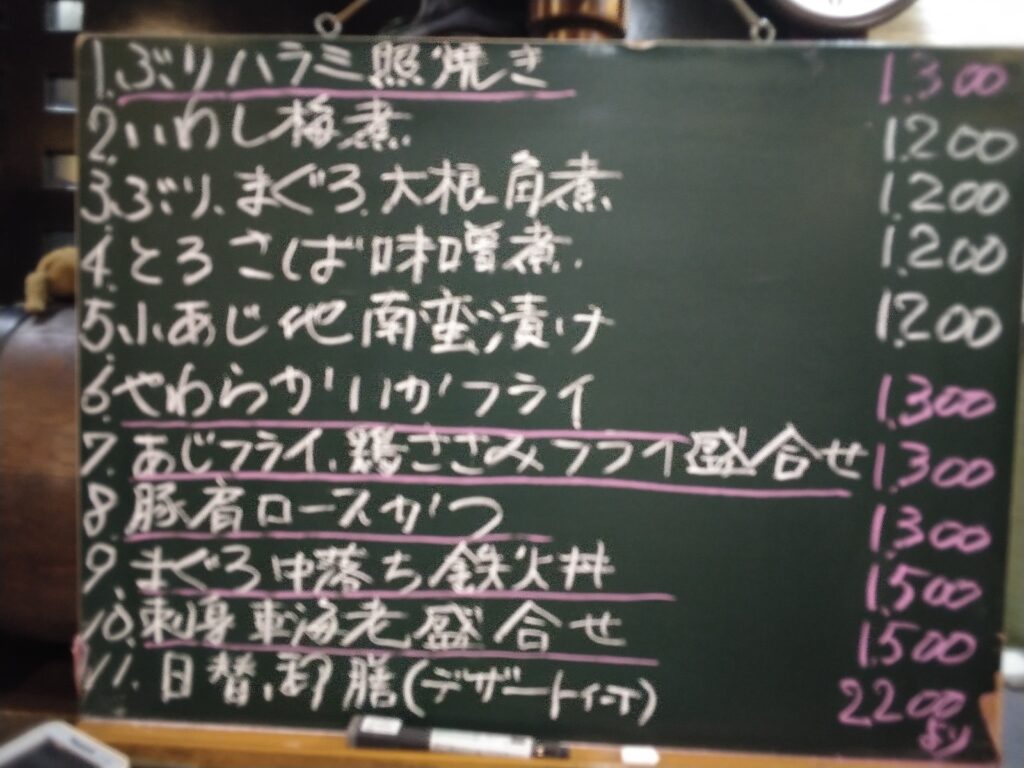 1.ぶりハラミ照焼き 1.300
2.いわし梅煮. 1.200
3.ぶり、まぐろ.大根角煮. 1.200
4.とろさば味噌煮. 1.200
5.小あじ地南蛮漬け 1.200
6.やわらかいかフライ 1.300
7.あじフライ、鶏ささみフライ盛合せ 1.300
8.豚肩ロースかつ 1.300
9.まぐろ中落ち鉄火丼 1.500
10.刺身車海老盛合せ 1.500
11.日替、御膳(デザート付) 2200より